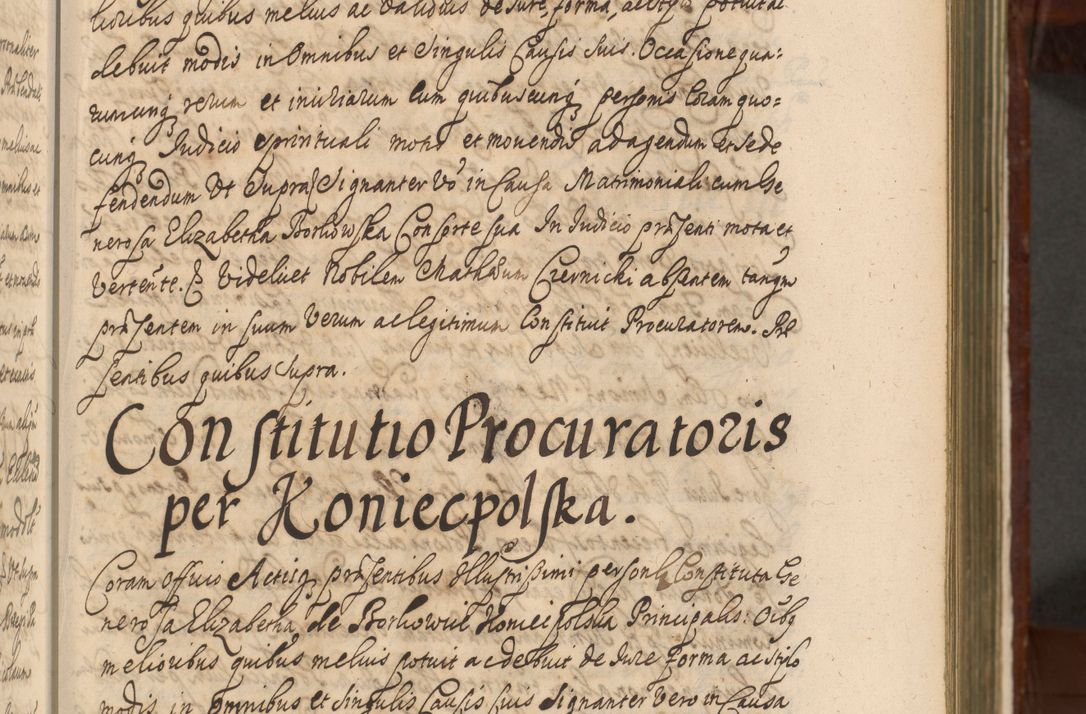 lioribus quibus melius ac validius de Jure, forma, ac stylo potuit ac
debuit modis in Omnibus et Singulis Causis suis. Occasione qua:
rumcunq rerum et iniuriarum cum quibuscunq personis Coram quo=
cunq Judicio spirituali motis et movendis ad agendum et sede
fendendum Vt Supra Signanter Vo in Causa Matrimoniali cum Ge
nerosa Elizabetha Borkowska Consorte sua In Judicio præsenti mota et
Vertente. Videlicet Nobilem Czernicki absentem tanqm
præsentem in suum Verum ac legitimum Constituit Procuratorem. Præ
sentibus quibus supra.
Constitutio Procuratoris
per Koniecpolska.
Coram Officio Actisq præsentibus Illustrissimi personlr Constituta Ge
nerosa Elizabetha de Borkowic Koniecpolska Principalis: Oibq
melioribus quibus melius potuit ac debuit de Jure forma ac stylo
modis in omnibus et Singulis Causis suis Signanter Vero in Causa